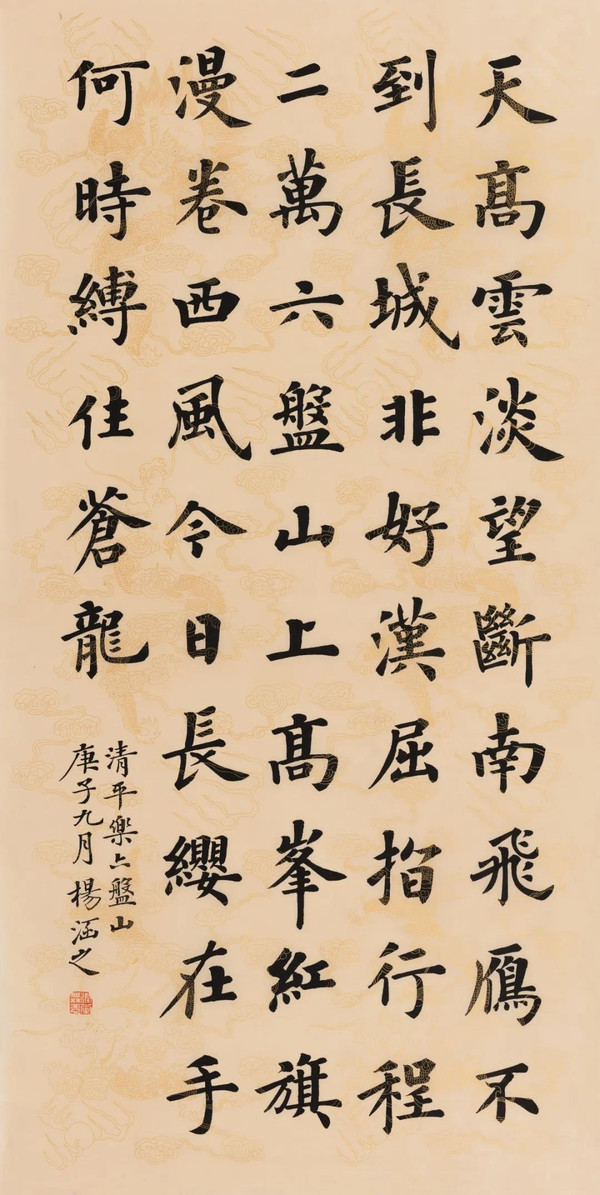 天高雲淡望斷南飛鴈不
到長城非好漢屈指行程
二萬六盤山上高峯紅旗
漫卷西風今日長纓在手
何時縛住蒼龍
清平樂六盤山
庚子九月楊涵之